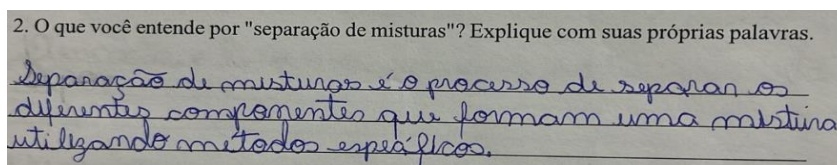 2. O que você entende por "separação de misturas"? Explique com suas próprias palavras.
Separação de misturas é o processo de separar os
diferentes componentes que formam uma mistura
utilizando métodos específicos.